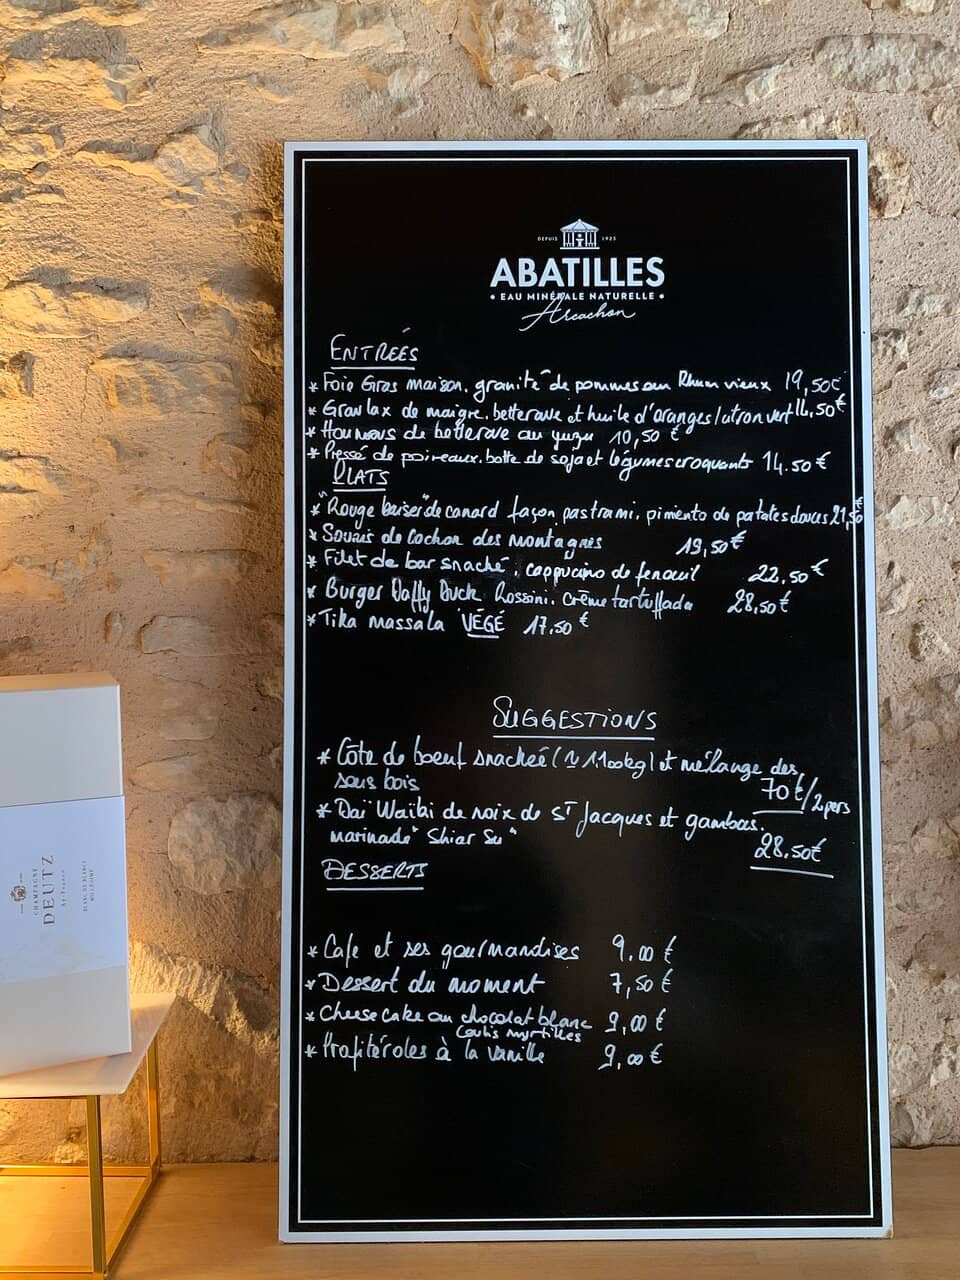 DEPUIS 1925
ABATILLES
• EAU MINÉRALE NATURELLE •
Arcachon
ENTRÉES
* Foie Gras maison. granité de pommes au Rhum vieux 19,50€
* Gravlax de maigre. betterave et huile d'oranges/citron vert 16,50€
* Houmous de betterave au yuzu 10,50 €
* Pressé de poireaux. botte de soja et légumes croquants 14.50 €
PLATS
* "Rouge baiser" de canard façon pastrami. pimento de patates douces 21,50
* Souris de cochon des montagnes 19,50€
* Filet de bar snacké. cappucino de fenouil 22,50€
* Burger Daffy Duck Rossini. crème tartuffada 28,50€
* Tika massala VÉGÉ 17,50 €
SUGGESTIONS
* Côte de boeuf snackée (≈ 1100kg) et mélange des
sous bois 70€/2pers
* Daï Waiki de noix de St Jacques et gambas.
marinade "Shiar Su" 28.50€
DESSERTS
* Cafe et ses gourmandises 9,00 €
* Dessert du moment 7,50 €
* Cheese cake au chocolat blanc 9,00 €
Coulis myrtilles
* Profitéroles à la vanille 9,00 €
CHAMPAGNE
DEUTZ
Aÿ-France
BLANC DE BLANCS
MILLÉSIMÉ